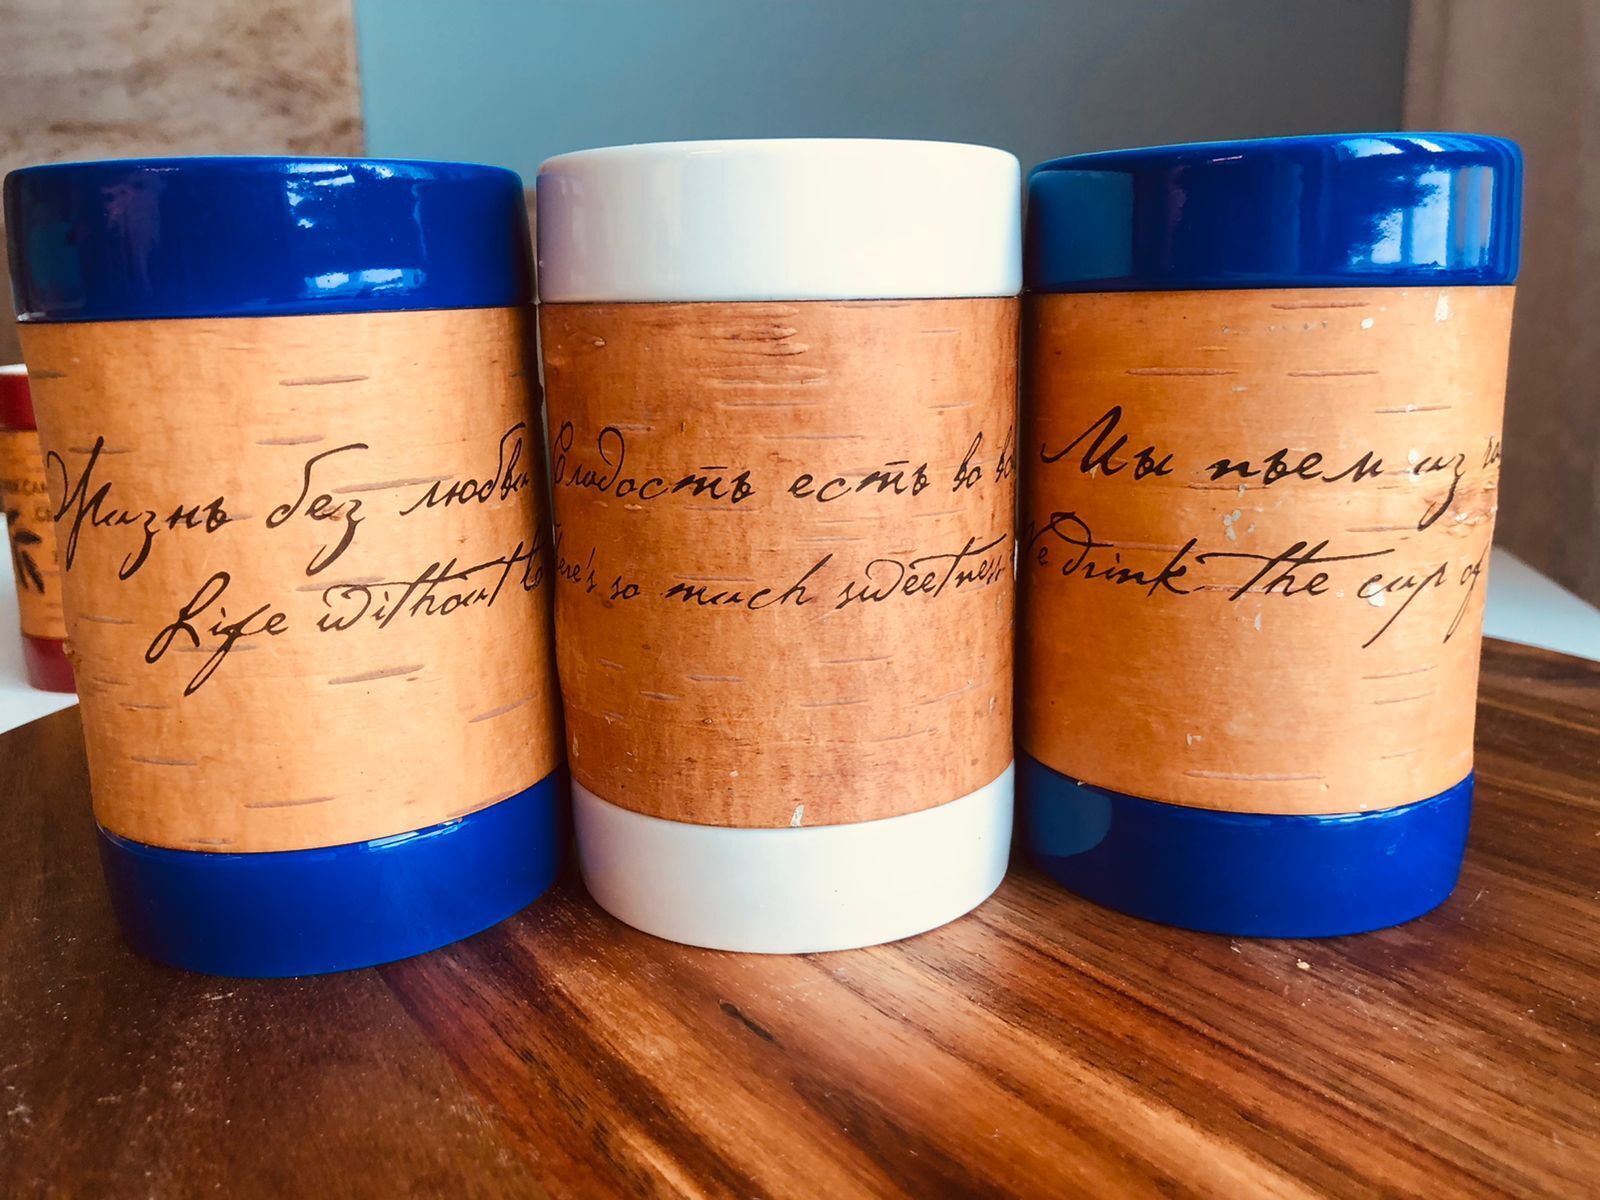 Жизнь без любви
Life without
Сладость есть во
There's so much sweetness
Мы пьем из
We drink the cup of